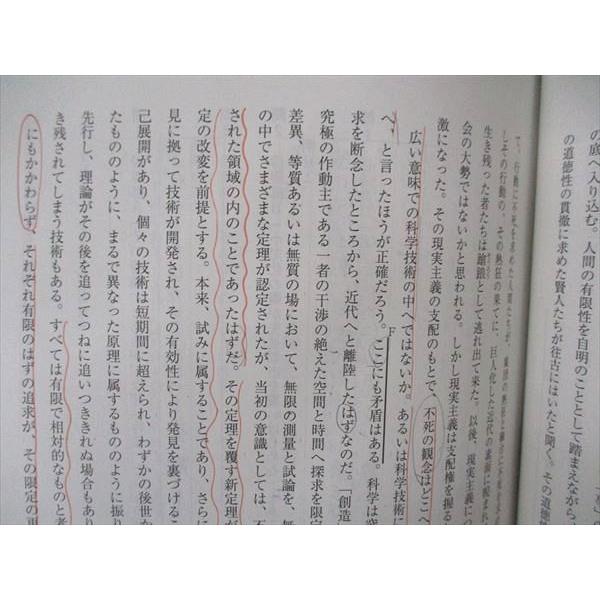 の底へ入り込む。人間の有限性を自明のこととして踏まえながら
の道徳性の貫徹に求めた賢人たちが往古にはいたと聞く。その道徳
て、行動に不死を求めた人間たちが、
しその行動の、その熱狂の果てに、巨人化した近代の素顔に睨まれ
生き残った者たちは蹌踉として逃れ出て来た。以後、現実主義につ
会の大勢ではないかと思われる。しかし現実主義は支配権を握る
激になった。その現実主義の支配のもとで、不死の観念はどこへ
広い意味での科学技術の中へではないか。あるいは科学技術に
へ、と言ったほうが正確だろう。F ここにも矛盾はある。科学は
求を断念したところから、近代へと離陸したはずなのだ。「創造
究極の作動主である一者の干渉の絶えた空間と時間へ探求を限定
差異、等質あるいは無質の場において、無限の測量と試論を、無
の中でさまざまな定理が認定されたが、当初の意識としては、
された領域の内のことであったはずだ。その定理を覆す新定理が
定の改変を前提とする。本来、試みに属することであり、さらに
見に拠って技術が開発され、その有効性により発見を裏づけるこ
己展開があり、個々の技術は短期間に超えられ、わずかの後世か
たもののように、まるで異なった原理に属するもののように振り
先行し、理論がその後を追ってつねに追いつききれぬ場合もあり
き残されてしまう技術もある。すべては有限で相対的なものと考
にもかかわらず、それぞれ有限のはずの追求が、その限定の